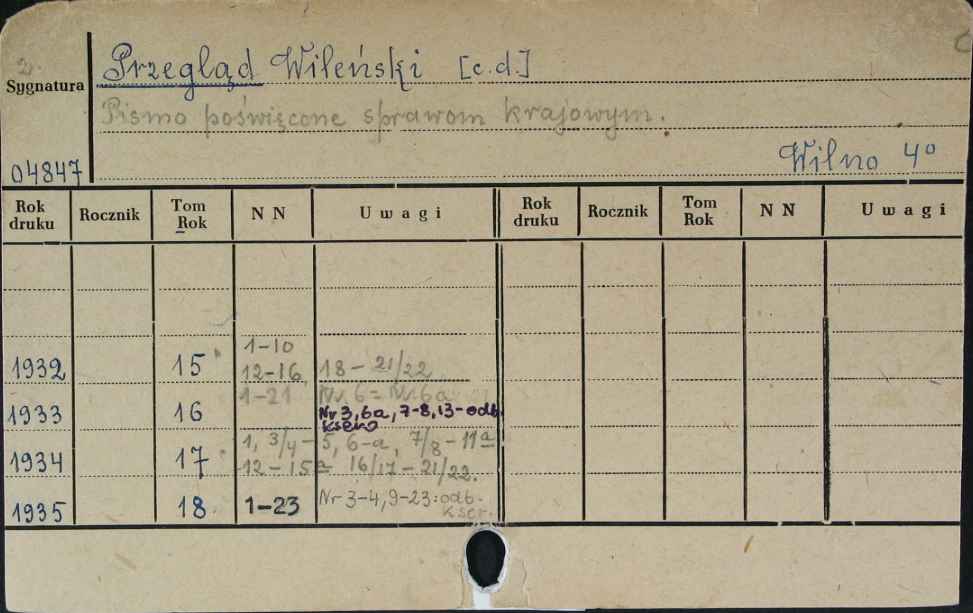 Przegląd Wileński [c.d.]
Sygnatura
Pismo poświęcone sprawom krajowym.
04847
Wilno 4°
Rok druku Rocznik Tom Rok N N Uwagi Rok druku Rocznik Tom Rok N N Uwagi
1-10
1932 15 12-16, 18-21/22
1-21 Nr. 6 = Nr. 6a
1933 16 Nr 3, 6a, 7-8, 13-odb. ksero
1, 3/4-5, 6-a, 7/8-11a
1934 17 12-15a 16/17-21/22.
1935 18 1-23 Nr 3-4, 9-23: odb. kser.